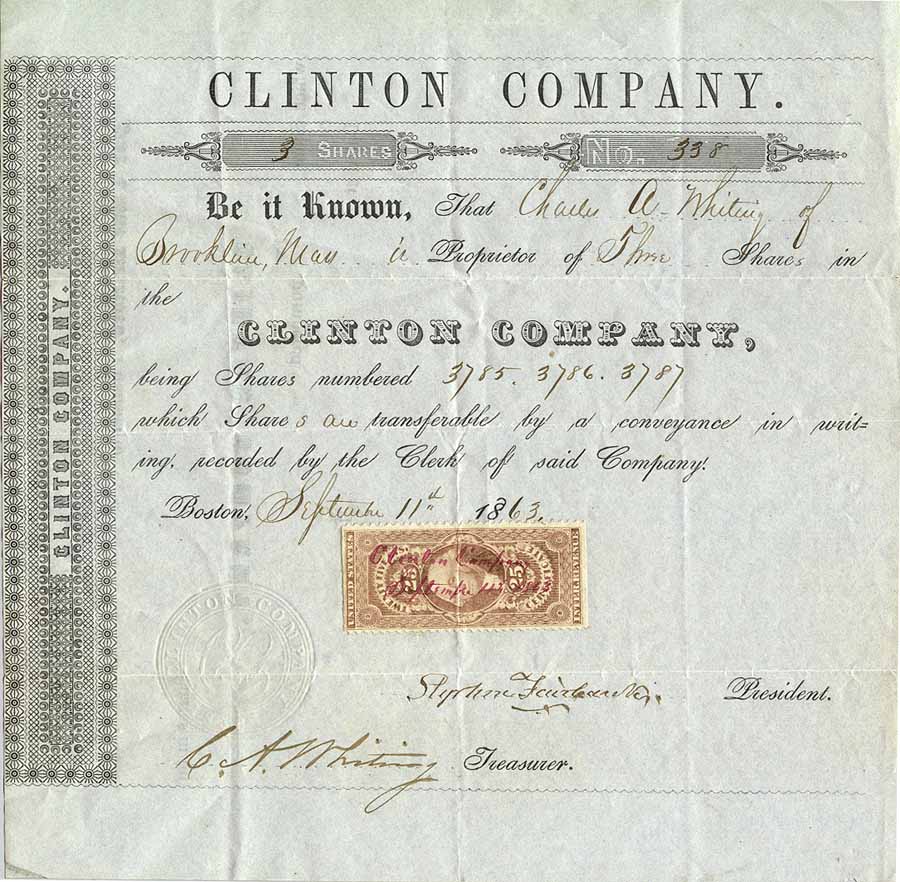 CLINTON COMPANY.
3 SHARES No. 338
Be it Known, That Charles A. Whiting of
Brookline, Mass is Proprietor of Three Shares in
the
CLINTON COMPANY,
being Shares numbered 3785. 3786. 3787
which Shares are transferable by a conveyance in writ-
ing, recorded by the Clerk of said Company.
Boston, September 11th 1863.
UNITED STATES
25 25
CERTIFICATE
Clinton Company
September 11th
CLINTON COMPANY
Stephen Fairbanks. President.
C. A. Whiting Treasurer.
CLINTON COMPANY.